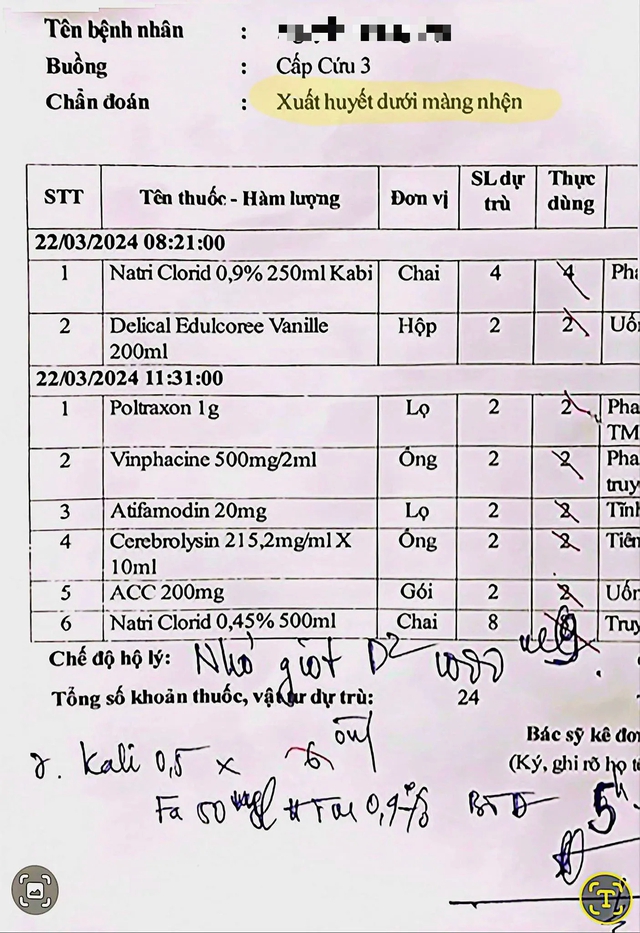 Tên bệnh nhân :
Buồng : Cấp Cứu 3
Chẩn đoán : Xuất huyết dưới màng nhện
STT Tên thuốc - Hàm lượng Đơn vị SL dự trù Thực dùng
22/03/2024 08:21:00
1 Natri Clorid 0,9% 250ml Kabi Chai 4 4 Pha
2 Delical Edulcoree Vanille 200ml Hộp 2 2 Uốn
22/03/2024 11:31:00
1 Poltraxon 1g Lọ 2 2 Pha TM
2 Vinphacine 500mg/2ml Ống 2 2 Pha truy
3 Atifamodin 20mg Lọ 2 2 Tĩnh
4 Cerebrolysin 215,2mg/ml X 10ml Ống 2 2 Tiên
5 ACC 200mg Gói 2 2 Uốn
6 Natri Clorid 0,45% 500ml Chai 8 8 Truy
Chế độ hộ lý: Nhỏ giọt
Tổng số khoản thuốc, vật tư dự trù: 24
Bác sỹ kê đơ
(Ký, ghi rõ họ tê
Kali 0,5 x 6 ống
50 0,9% 5h